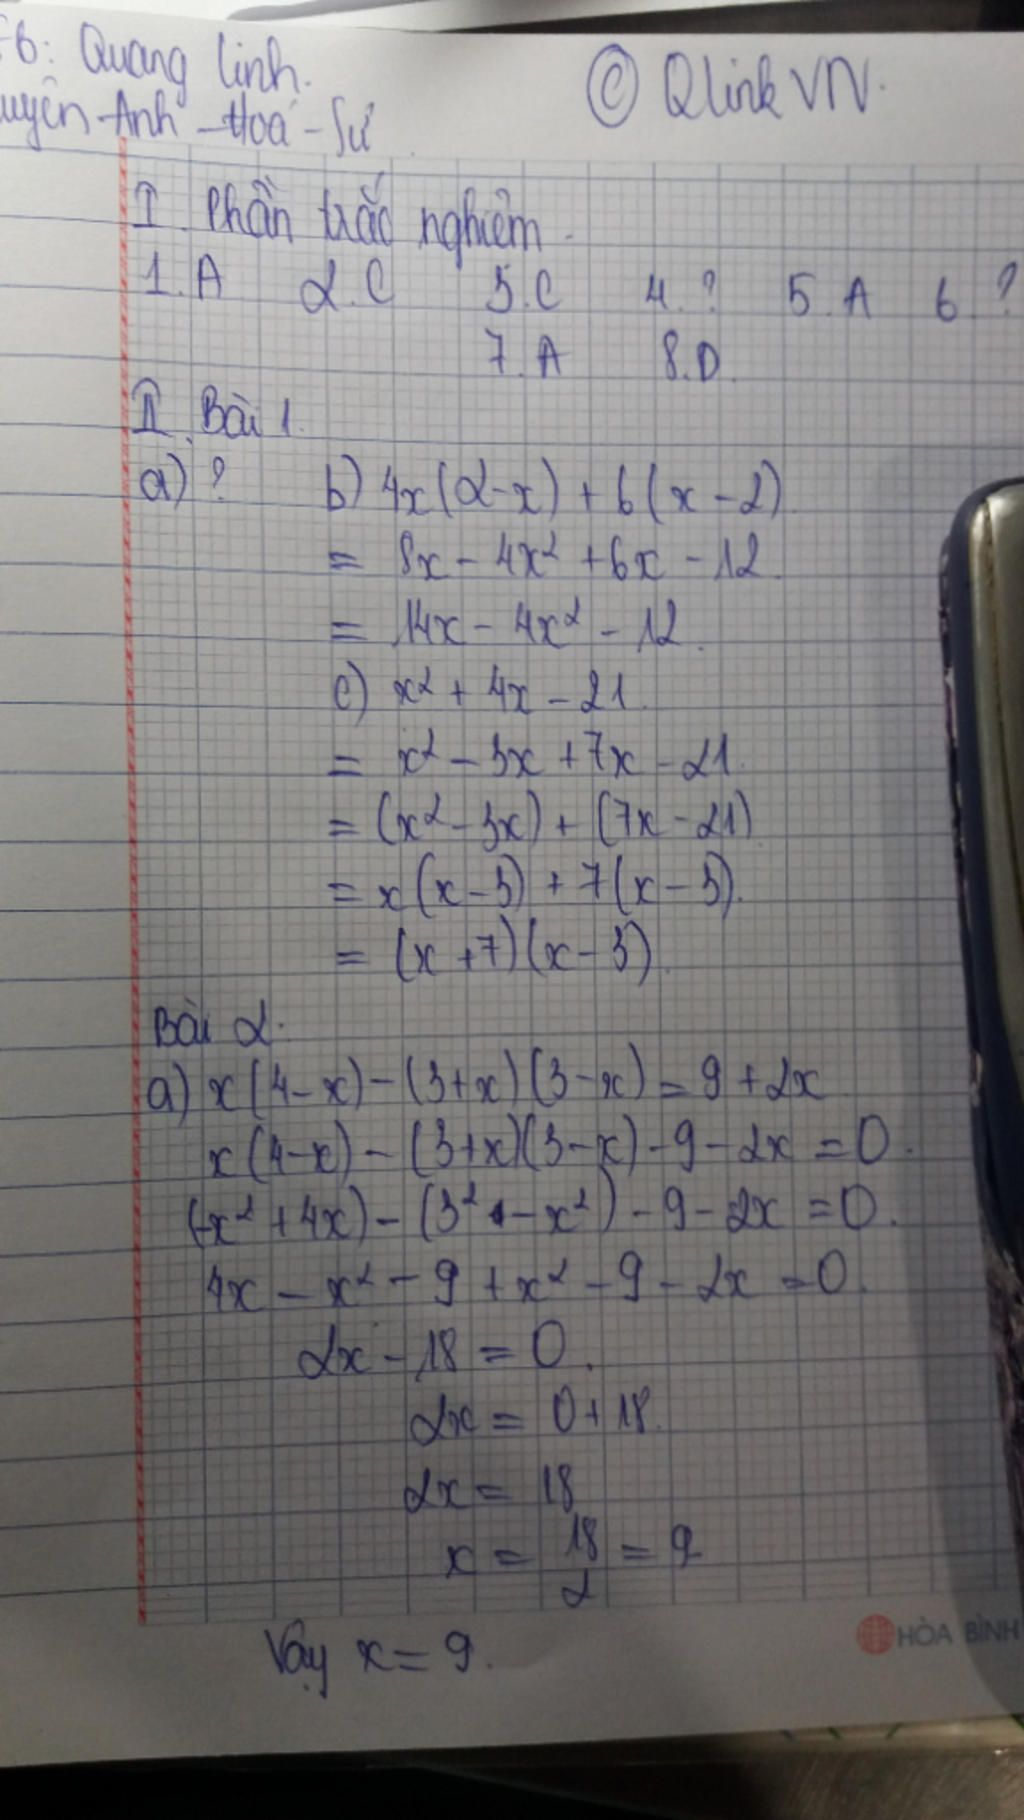 FB: Quang Linh.
© Qlink VN.
uyên-Anh-Hoá-Sử
I. Phần trắc nghiệm.
1. A 2. C 3. C 4. ? 5. A 6 ?
7. A 8. D.
II. Bài 1.
a) ? b) 4x(2-x) + 6(x-2)
= 8x - 4x² + 6x - 12.
= 14x - 4x² - 12.
c) x² + 4x - 21.
= x² - 3x + 7x - 21.
= (x² - 3x) + (7x - 21)
= x(x-3) + 7(x-3).
= (x+7)(x-3).
Bài 2.
a) x(4-x) - (3+x)(3-x) = 9 + 2x
x(4-x) - (3+x)(3-x) - 9 - 2x = 0.
(-x² + 4x) - (3² - x²) - 9 - 2x = 0.
4x - x² - 9 + x² - 9 - 2x = 0.
2x - 18 = 0.
2x = 0 + 18.
2x = 18
x = 18/2 = 9
HÒA BÌNH
Vậy x = 9.